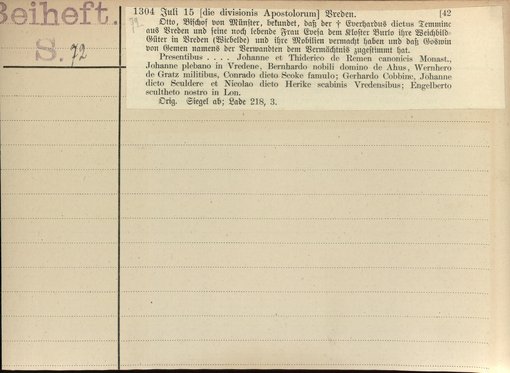 Beiheft.
S. 72
1304 Juli 15 [die divisionis Apostolorum] Vreden. [42
Otto, Bischof von Münster, bekundet, daß der † Everhardus dictus Temminc
aus Vreden und seine noch lebende Frau Evesa dem Kloster Burlo ihre Weichbild-
Güter in Vreden (Wicbelde) und ihre Mobilien vermacht haben und daß Goswin
von Gemen namens der Verwandten dem Vermächtnis zugestimmt hat.
Presentibus . . . . Johanne et Thiderico de Remen canonicis Monast.,
Johanne plebano in Vredene, Bernhardo nobili domino de Ahus, Wernhero
de Gratz militibus, Conrado dicto Scoke famulo; Gerhardo Cobbinc, Johanne
dicto Sculdere et Nicolao dicto Herike scabinis Vredensibus; Engelberto
scultheto nostro in Lon.
Orig. Siegel ab; Lade 218, 3.